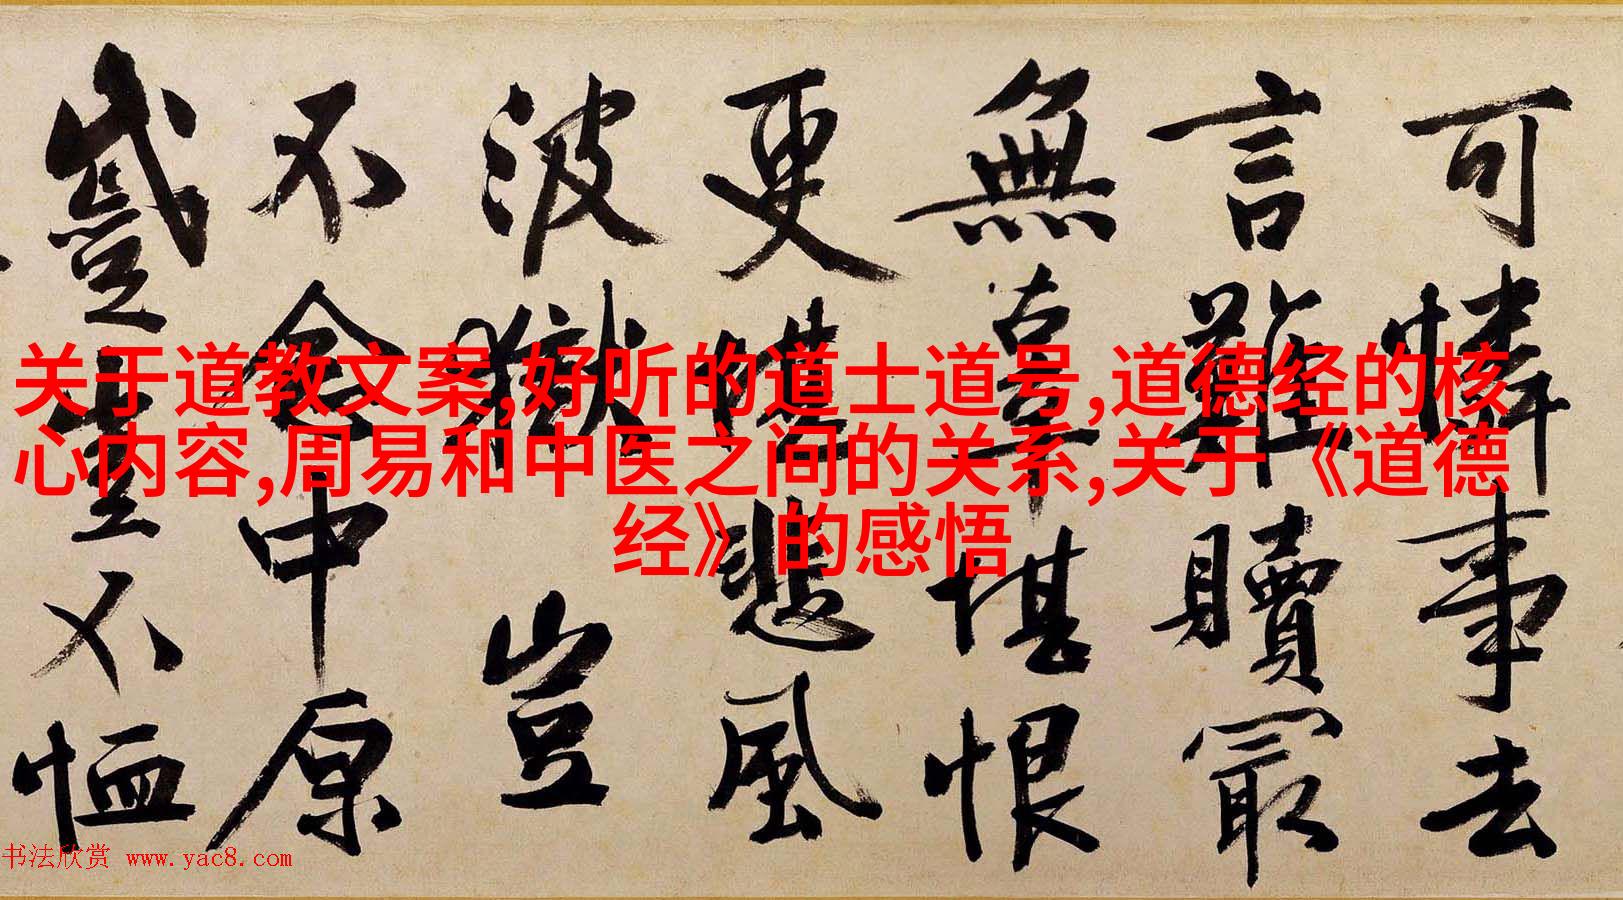 可憐事去
言難贖冣
無辜堪恨
更悲風
波獄豈
不念中原
蹙豈不恤
关于道教文案,好听的道士道号,道德经的核
心内容,周易和中医之间的关系,关于《道德
经》的感悟
书法欣赏 www.yac8.com